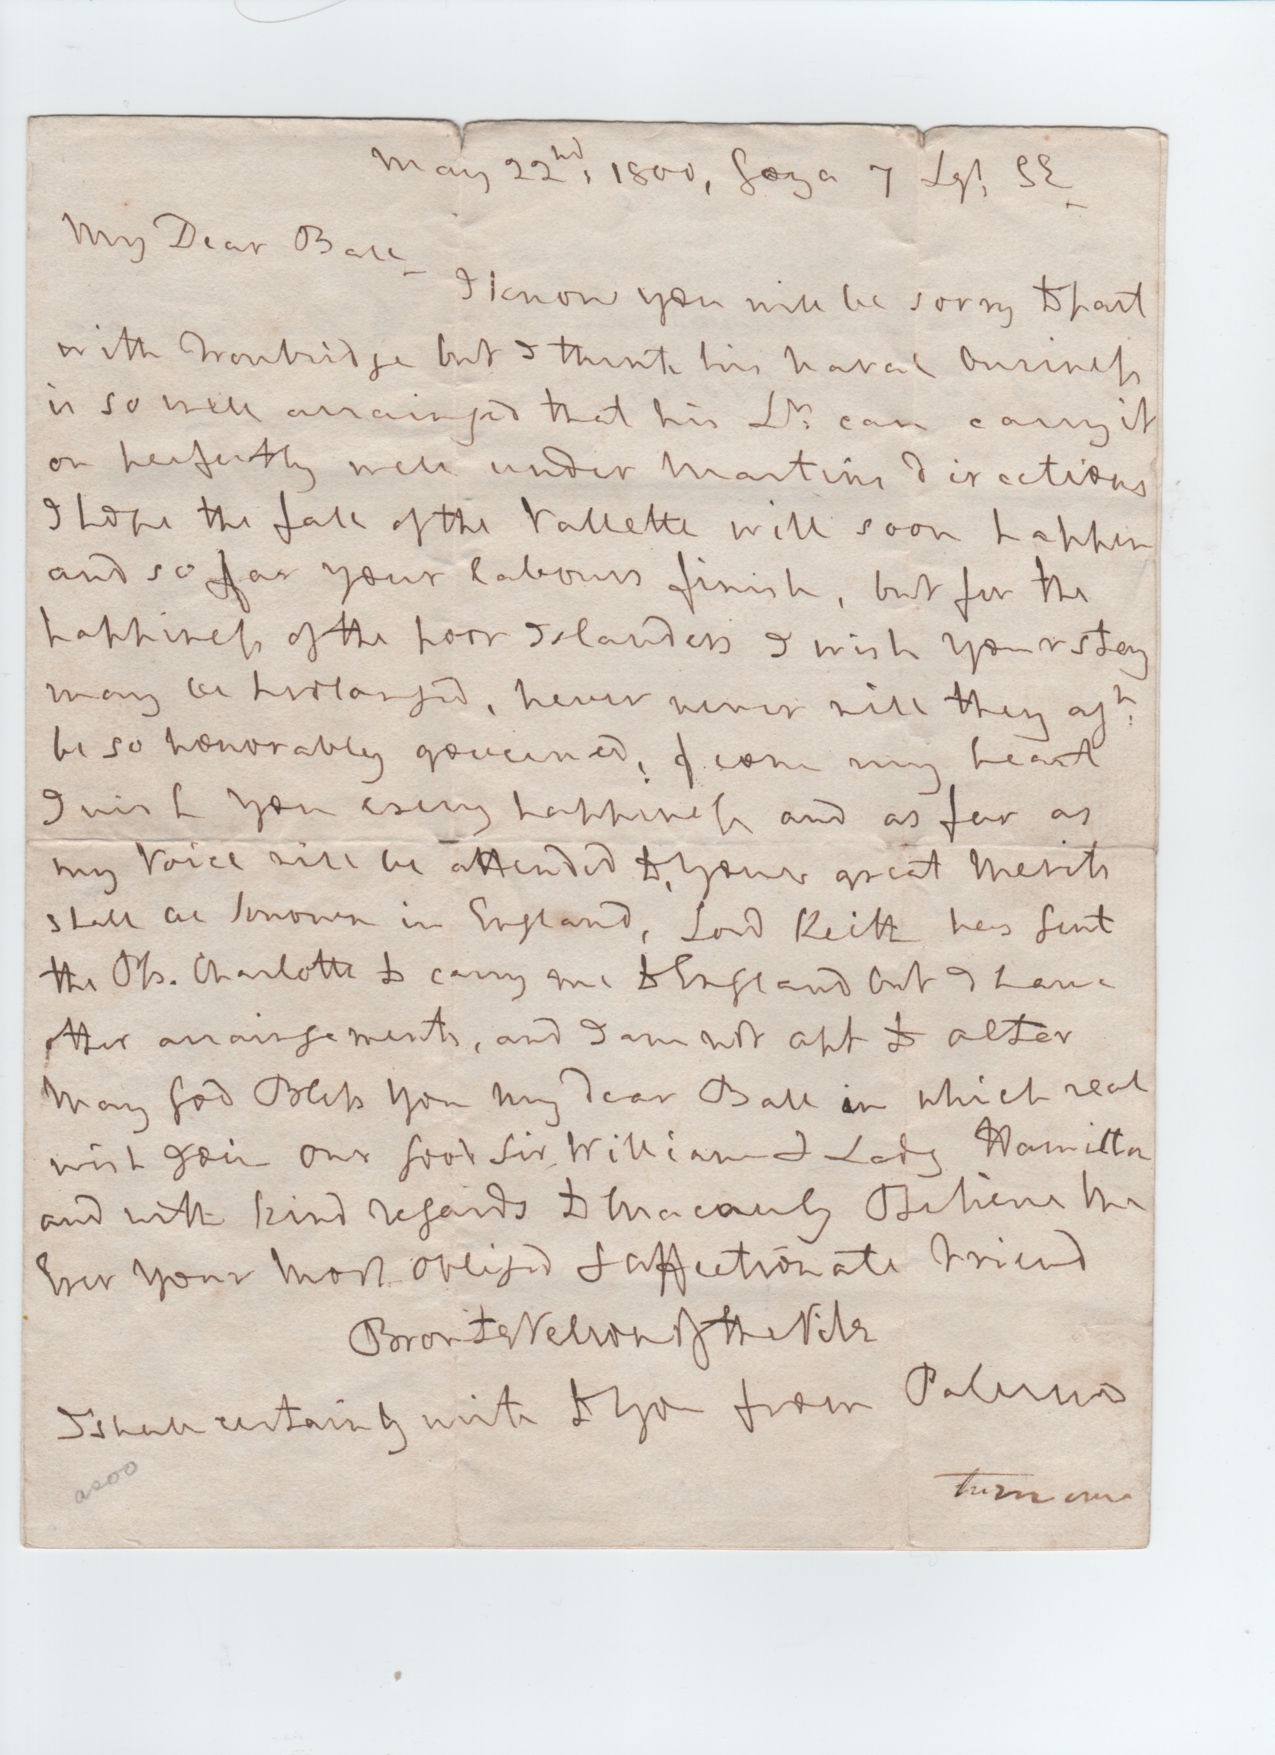 May 22nd, 1800, Goza 7 Lgs. SE
My Dear Ball
I know you will be sorry to part
with Troubridge but I think his Naval business
is so well arrainged that his Lt. can carry it
on perfectly well under Martins directions
I hope the fall of the Vallette will soon happen
and so far your labours finish, but for the
happiness of the poor Islanders I wish your stay
may be prolonged, never never will they agn:
be so honorably governed, from my heart
I wish you every happiness and as far as
my voice will be attended to, your great merits
shall be known in England, Lord Keith has sent
the Ps. Charlotte to carry me to England but I have
other arraingements, and I am not apt to alter
May God Bless You my dear Ball in which real
wish join our good Sir William & Lady Hamilton
and with kind regards to Macauly Believe Me
Ever your most obliged & affectionate Friend
Bronte Nelson of the Nile
I shall certainly write to you from Palermo
turn over